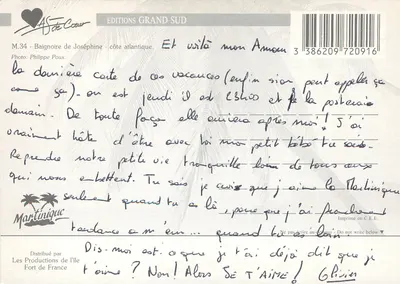 AS de Cœur
EDITIONS GRAND SUD
M.34 - Baignoire de Joséphine - côte atlantique.
Photo: Philippe Poux.
3 386209 720916
Et voilà mon Amour
la dernière carte de ces vacances (enfin si on peut appeler ça
comme ça). on est jeudi il est et je la posterais
demain. De toute façon elle arrivera après moi! J'ai
vraiment hâte d'être avec toi mon petit bébé tu sais.
Reprendre notre petite vie tranquille loin de tous ceux
qui nous embettent. Tu sais je crois que j'aime la Martinique
seulement quand tu es là, parce que j'ai franchement
Martinique
Imprimé en C.E.E.
tendance a m'en... quand tu es loin.
Do not write below
Distribué par
Les Productions de l'Ile
Fort de France
Dis-moi est-ce que je t'ai déjà dit que je
t'aime? Non! Alors JE T'AIME! Olivier